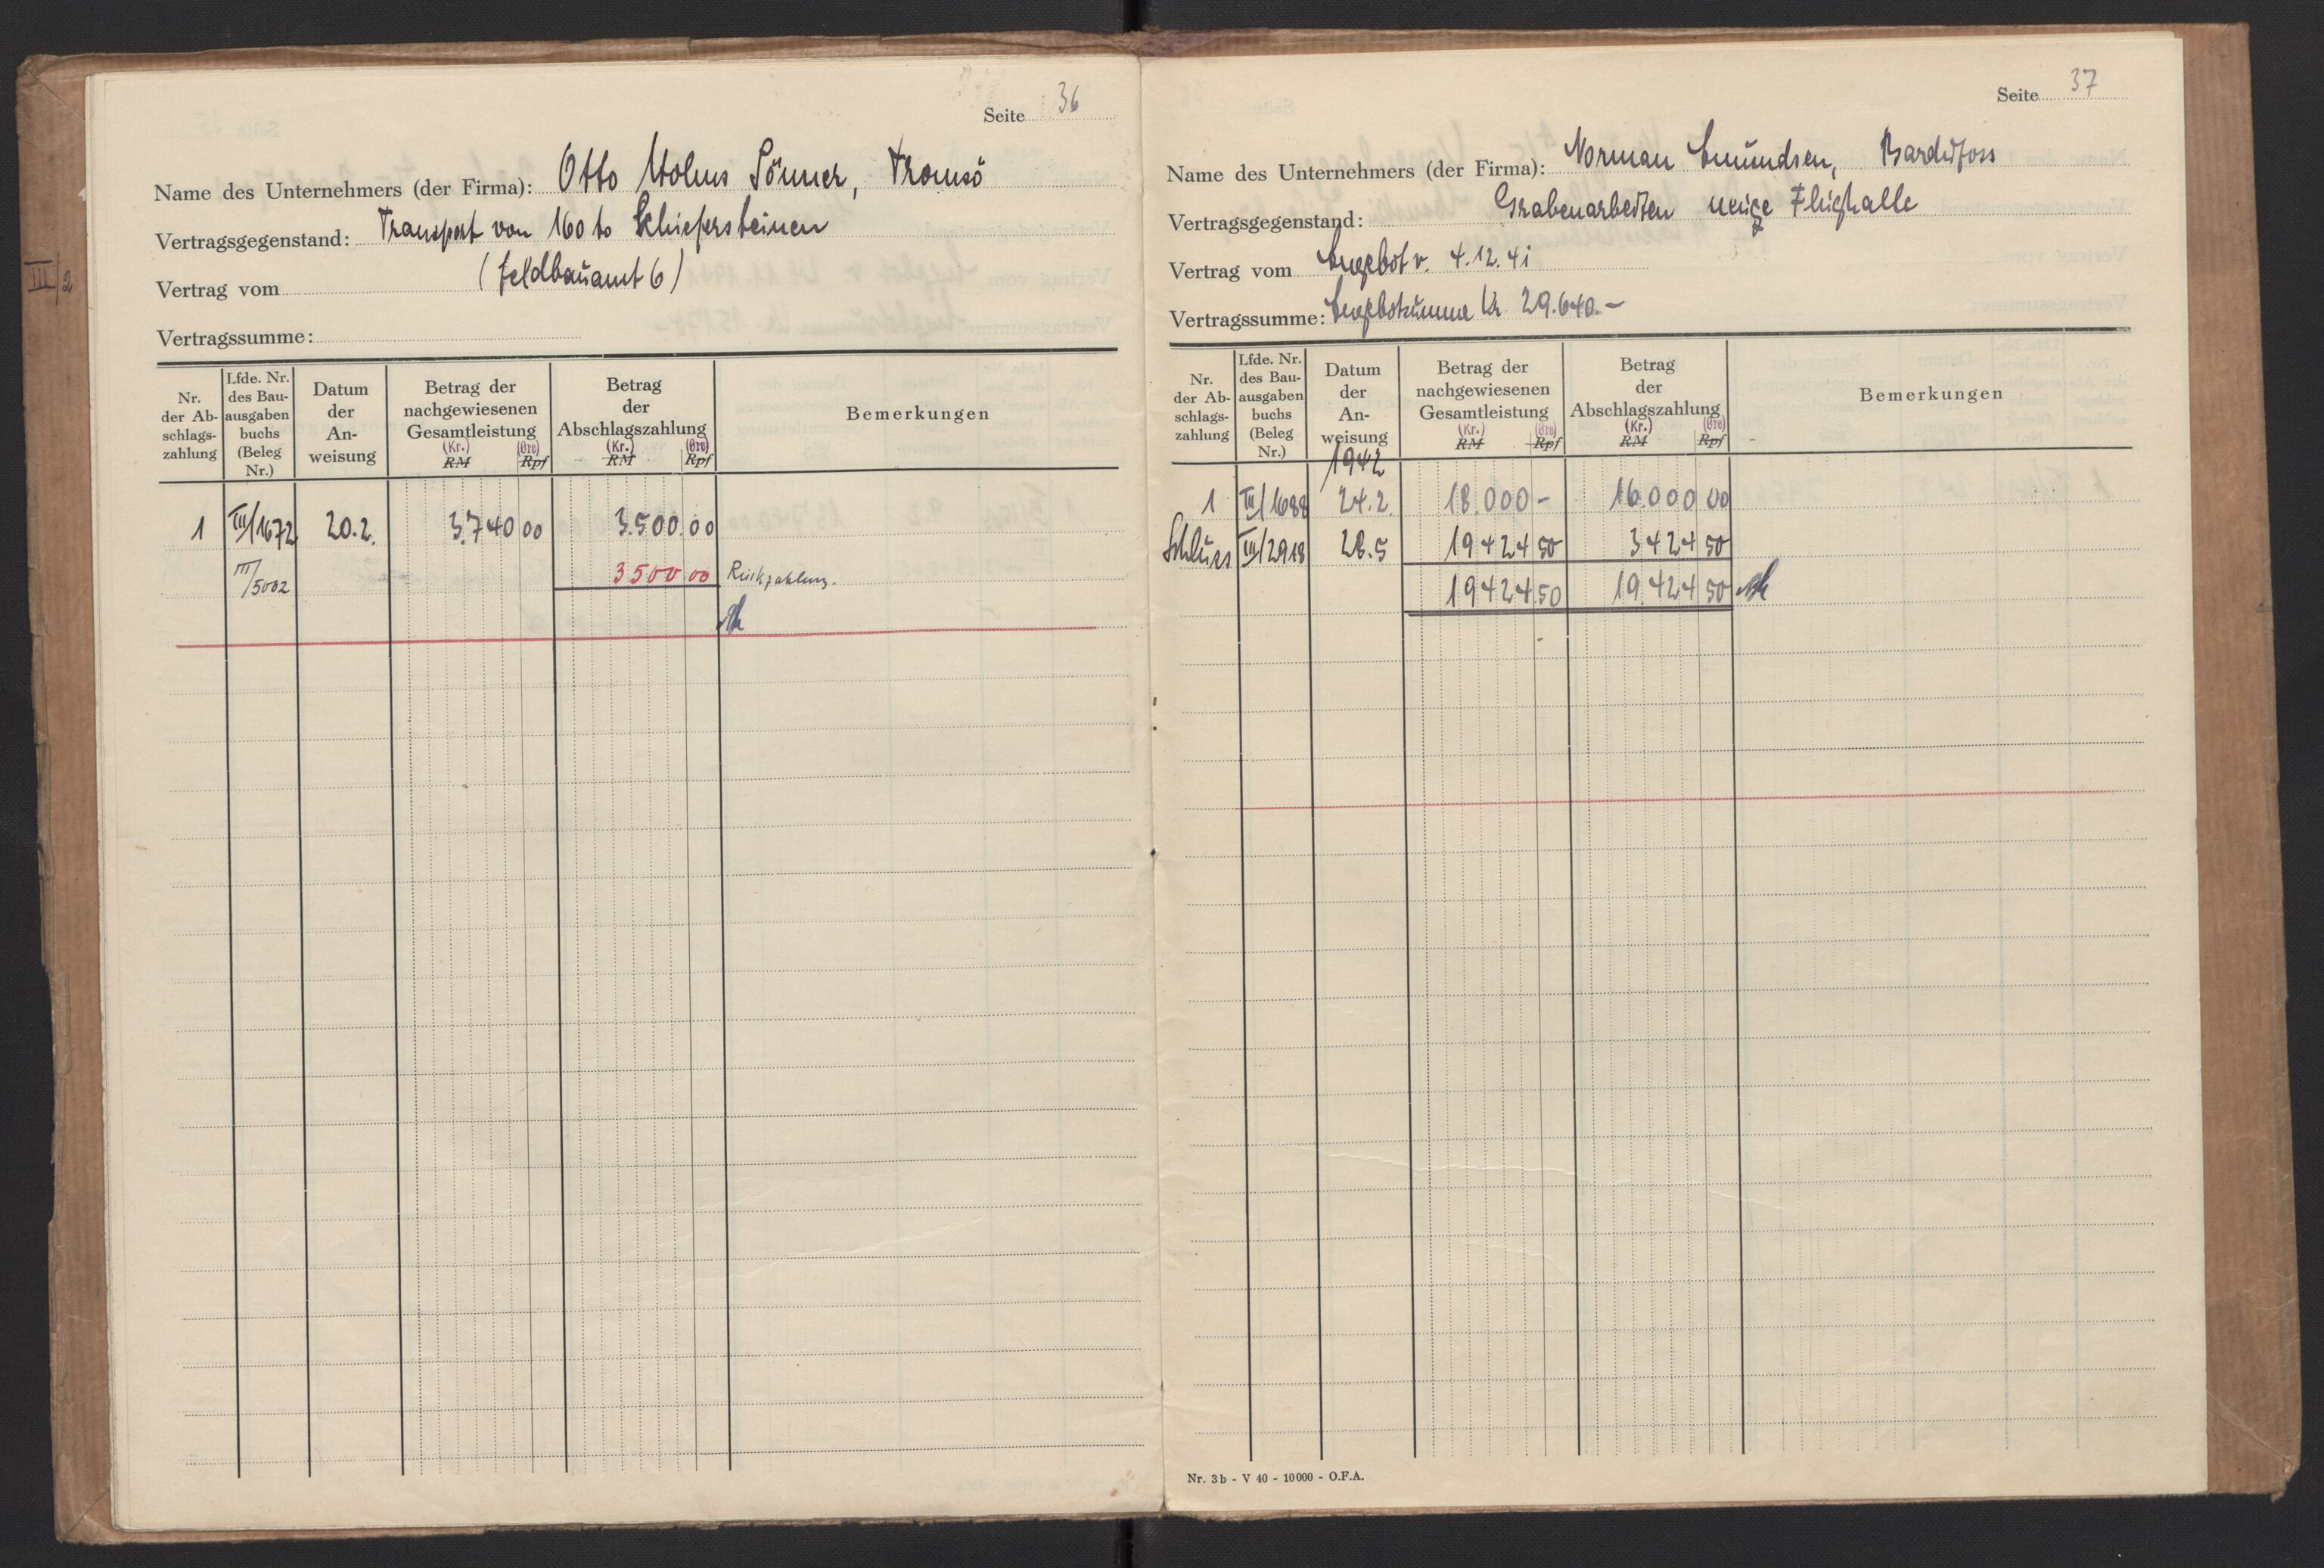 III/2
Seite 36
Name des Unternehmers (der Firma): Otto Holms Sönner, Tromsö
Vertragsgegenstand: Transport von 160 to Schiefersteinen
Vertrag vom (Feldbauamt 6)
Vertragssumme:
Nr. der Abschlags-zahlung
Lfde. Nr. des Bau-ausgaben buchs (Beleg Nr.)
Datum der An-weisung
Betrag der nachgewiesenen Gesamtleistung (Kr.) RM (Øre) Rpf
Betrag der Abschlagszahlung (Kr.) RM (Øre) Rpf
Bemerkungen
1 III/1672 20.2. 3.740 00 3.500.00
III/5002 3500 00 Rückzahlung.
Seite 37
Name des Unternehmers (der Firma): Norman Amundsen, Bardufoss
Vertragsgegenstand: Grabenarbeiten neue Flughalle
Vertrag vom Angebot v. 4.12.41
Vertragssumme: Angebotsumme Kr. 29.640.–
Nr. der Ab-schlags-zahlung
Lfde. Nr. des Bau-ausgaben buchs (Beleg Nr.)
Datum der An-weisung
Betrag der nachgewiesenen Gesamtleistung (Kr.) RM (Øre) Rpf
Betrag der Abschlagszahlung (Kr.) RM (Øre) Rpf
Bemerkungen
1942
1 III/1688 24.2. 18.000 – 16.000 00
Schluss III/2918 28.5 19424 50 3424 50
19424 50 19.424 50
Nr. 3b - V 40 - 10000 - O.F.A.